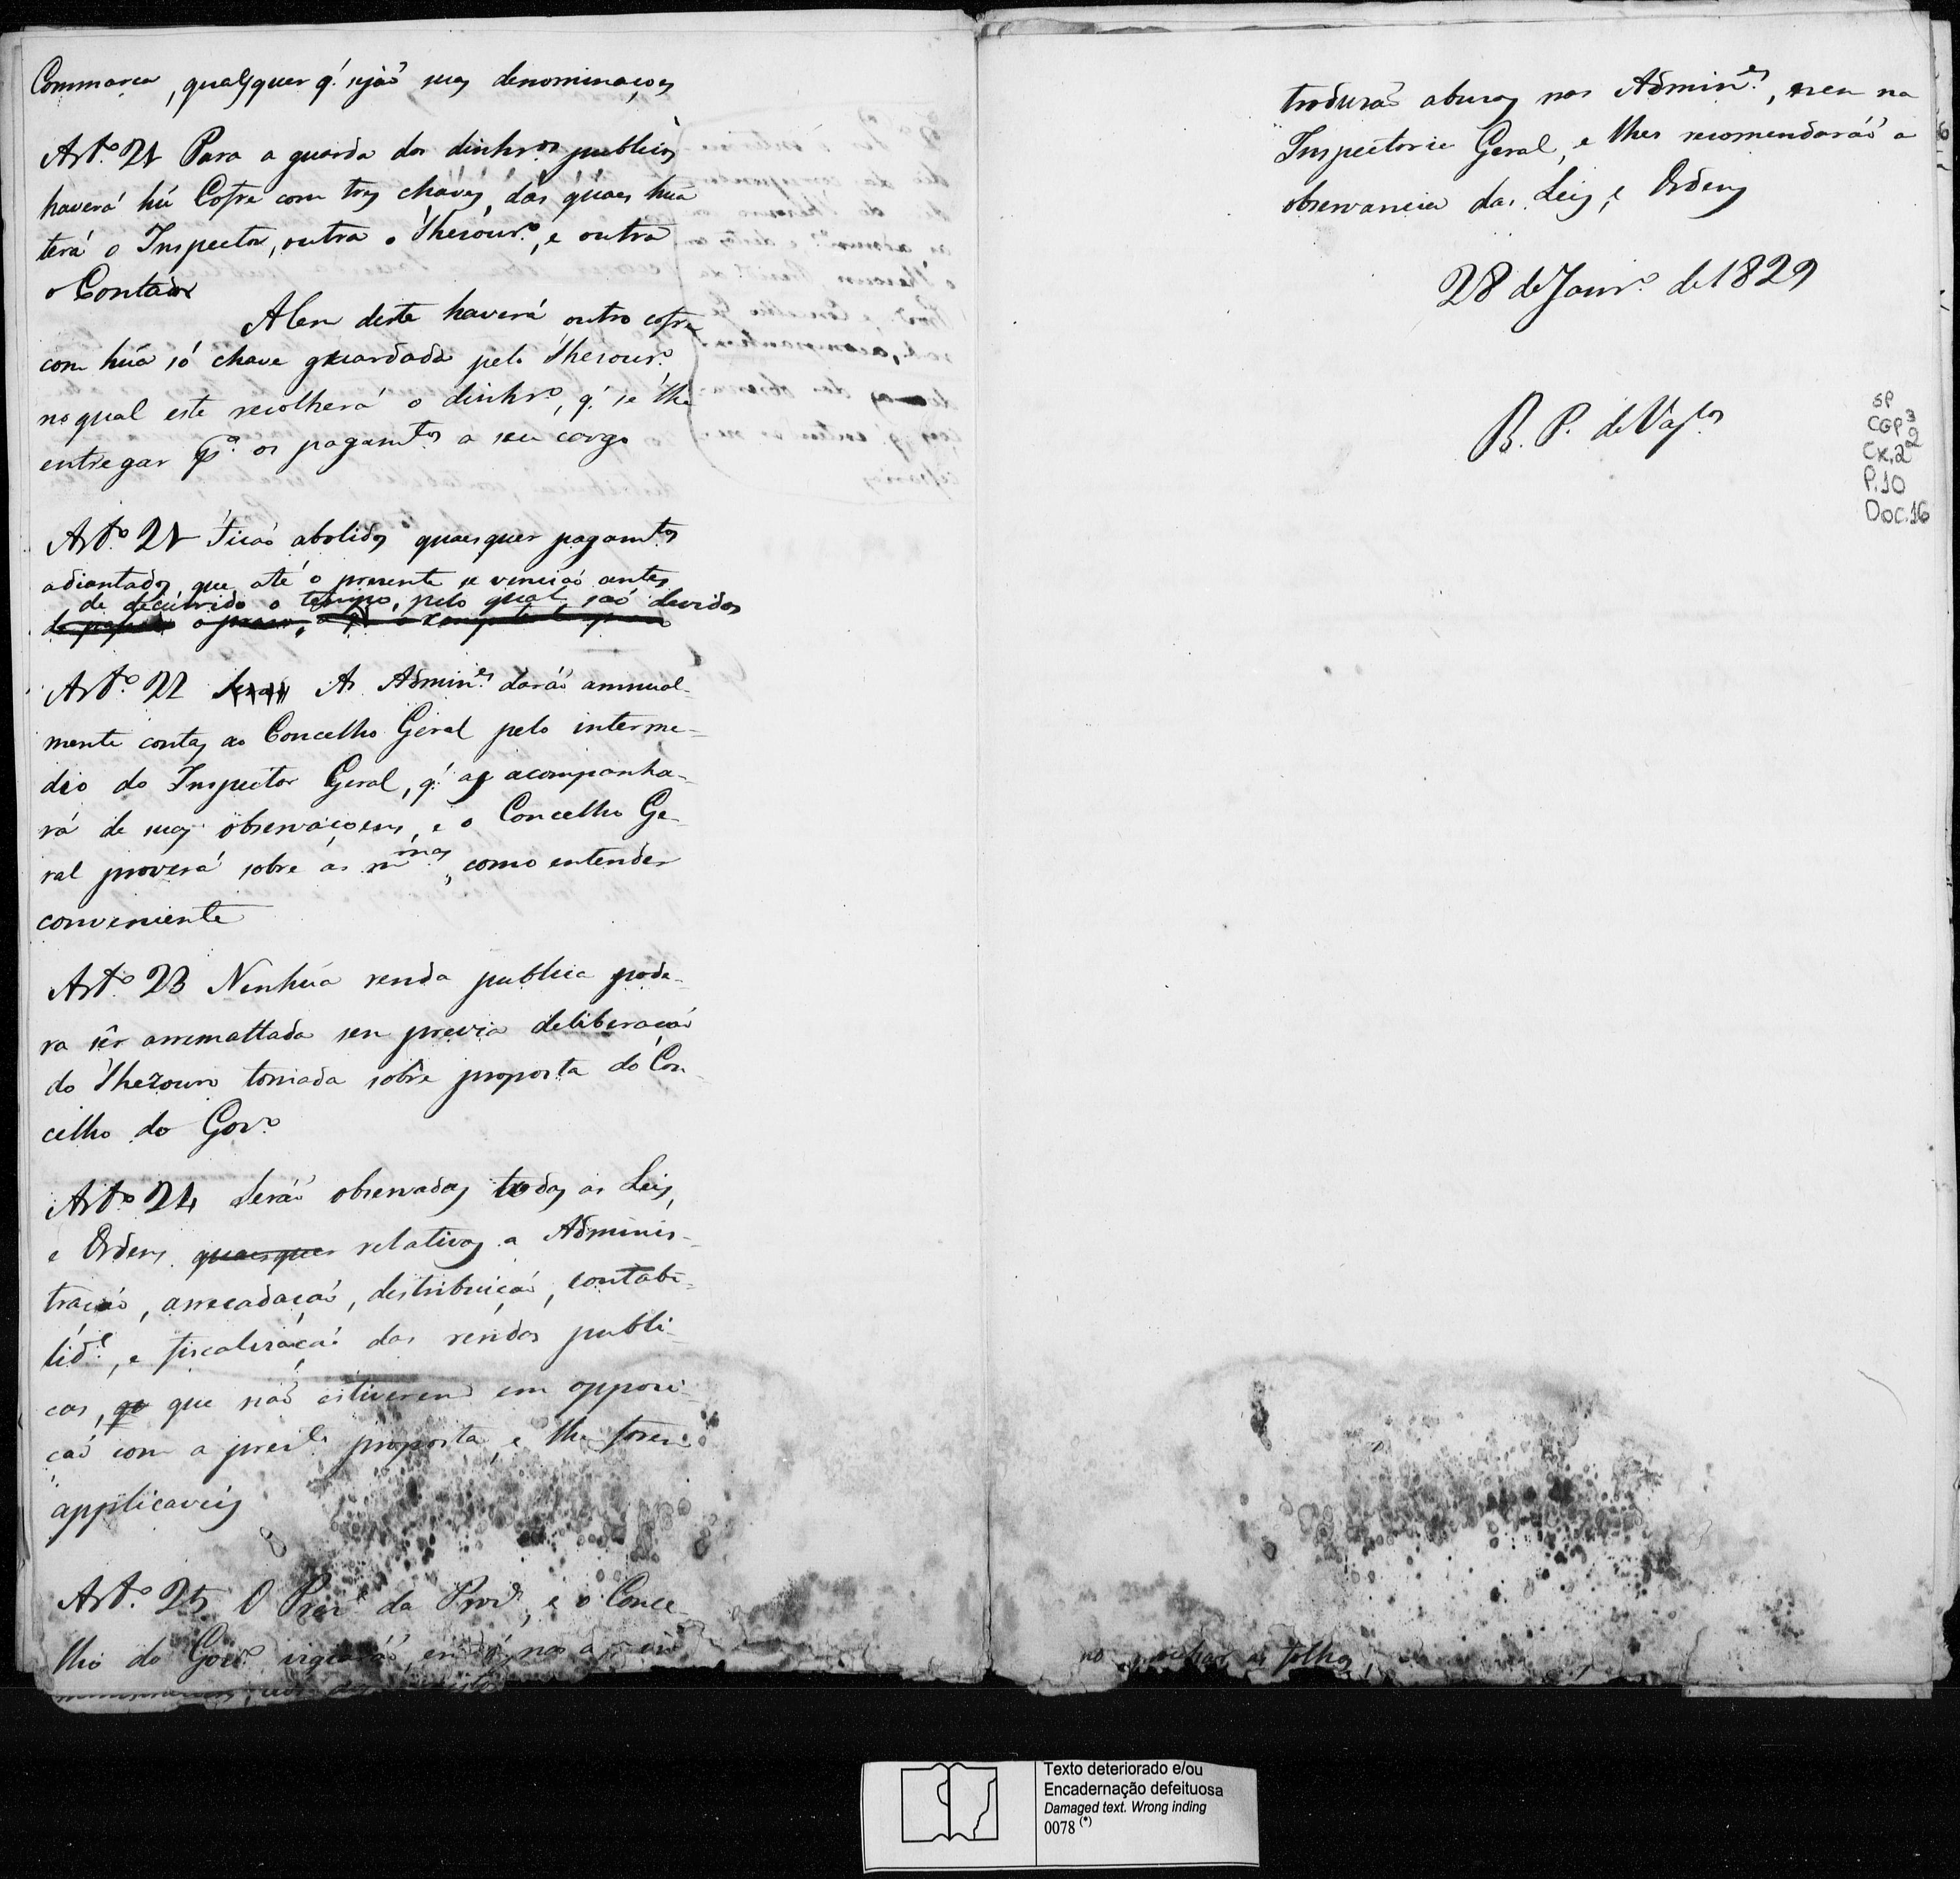 Commarca, qualqquer q.' sejaõ suas denominaçoes
Art.º 21 Para a guarda dos dinhr.os publicos
haverá hũ Cofre com tres chaves, das quaes hũa
terá o Inspector, outra o Thesour.º, e outra
o Contador
Alem deste haverá outro cofre
com hũa só chave guardada pelo Thesour.º
no qual este recolherá o dinhr.º, q.' se lhe
entregar p.ª os pagam.tos a seu cargo
Art.º 21 Ficaõ abolidos quaesquer pagam.tos
adiantados que até o presente se venciaõ antes
de decurrido o tempo, pelo qual saõ devidos
Art.º 22 Seraõ As Admin.es daráõ annual-
mente contas ao Concelho Geral pelo interme-
dio do Inspector Geral, q.' as acompanha-
rá de suas observaçoens, e o Concelho Ge-
ral proverá sobre as m.mas, como entender
conveniente
Art.º 23 Nenhũa renda publica pode-
ra sêr arremattada sem previa deliberaçaõ
do Thezouro tomada sobre proposta do Con-
celho do Gov.º
Art.º 24 Seráõ observadas todas as Leis,
e Ordens quaesquer relativas a Adminis-
traçaõ, arrecadaçaõ, destribuiçaõ, contabi-
lid.e, e fiscalisaçaõ das rendas publi-
cas, que naõ estiverem em opposi-
çaõ com a presl.e proposta, e lhe forem
applicaveis
Art.º 25 O Prez.e da Prov.ª, e o Conce-
lho do Gov.º vigiaráõ, em q.' nos
troduzaõ abusos nas Admin.es, nem na
Inspectoria Geral, e lhes recomendaráõ a
observancia das Leis, e Ordens
28 de Janr.º de 1829
B. P. de Vas.los
SP
CGP3
Cx.2 2
P.10
Doc.16
no as folhas
Texto deteriorado e/ou
Encadernação defeituosa
Damaged text. Wrong inding
0078 (*)